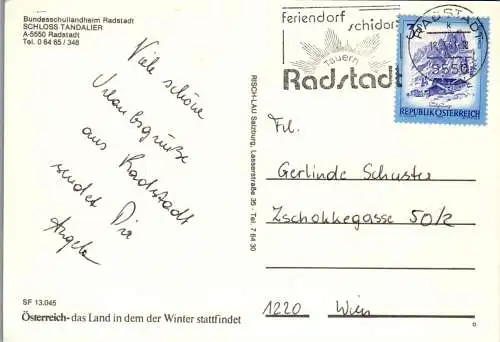 Bundesschullandheim Radstadt
SCHLOSS TANDALIER
A-5550 Radstadt
Tel. 0 64 65 / 348
Viele schöne
Urlaubsgrüße
aus Radstadt
sendet Dir
Angela
SF 13.045
Österreich - das Land in dem der Winter stattfindet
RISCH-LAU Salzburg, Lasserstraße 35 - Tel. 7 64 30
Feriendorf
schidorf
Tauern
Radstadt
RADSTADT
5550
REPUBLIK ÖSTERREICH
Frl.
Gerlinde Schuster
Zschokkegasse 50/2
1220 Wien